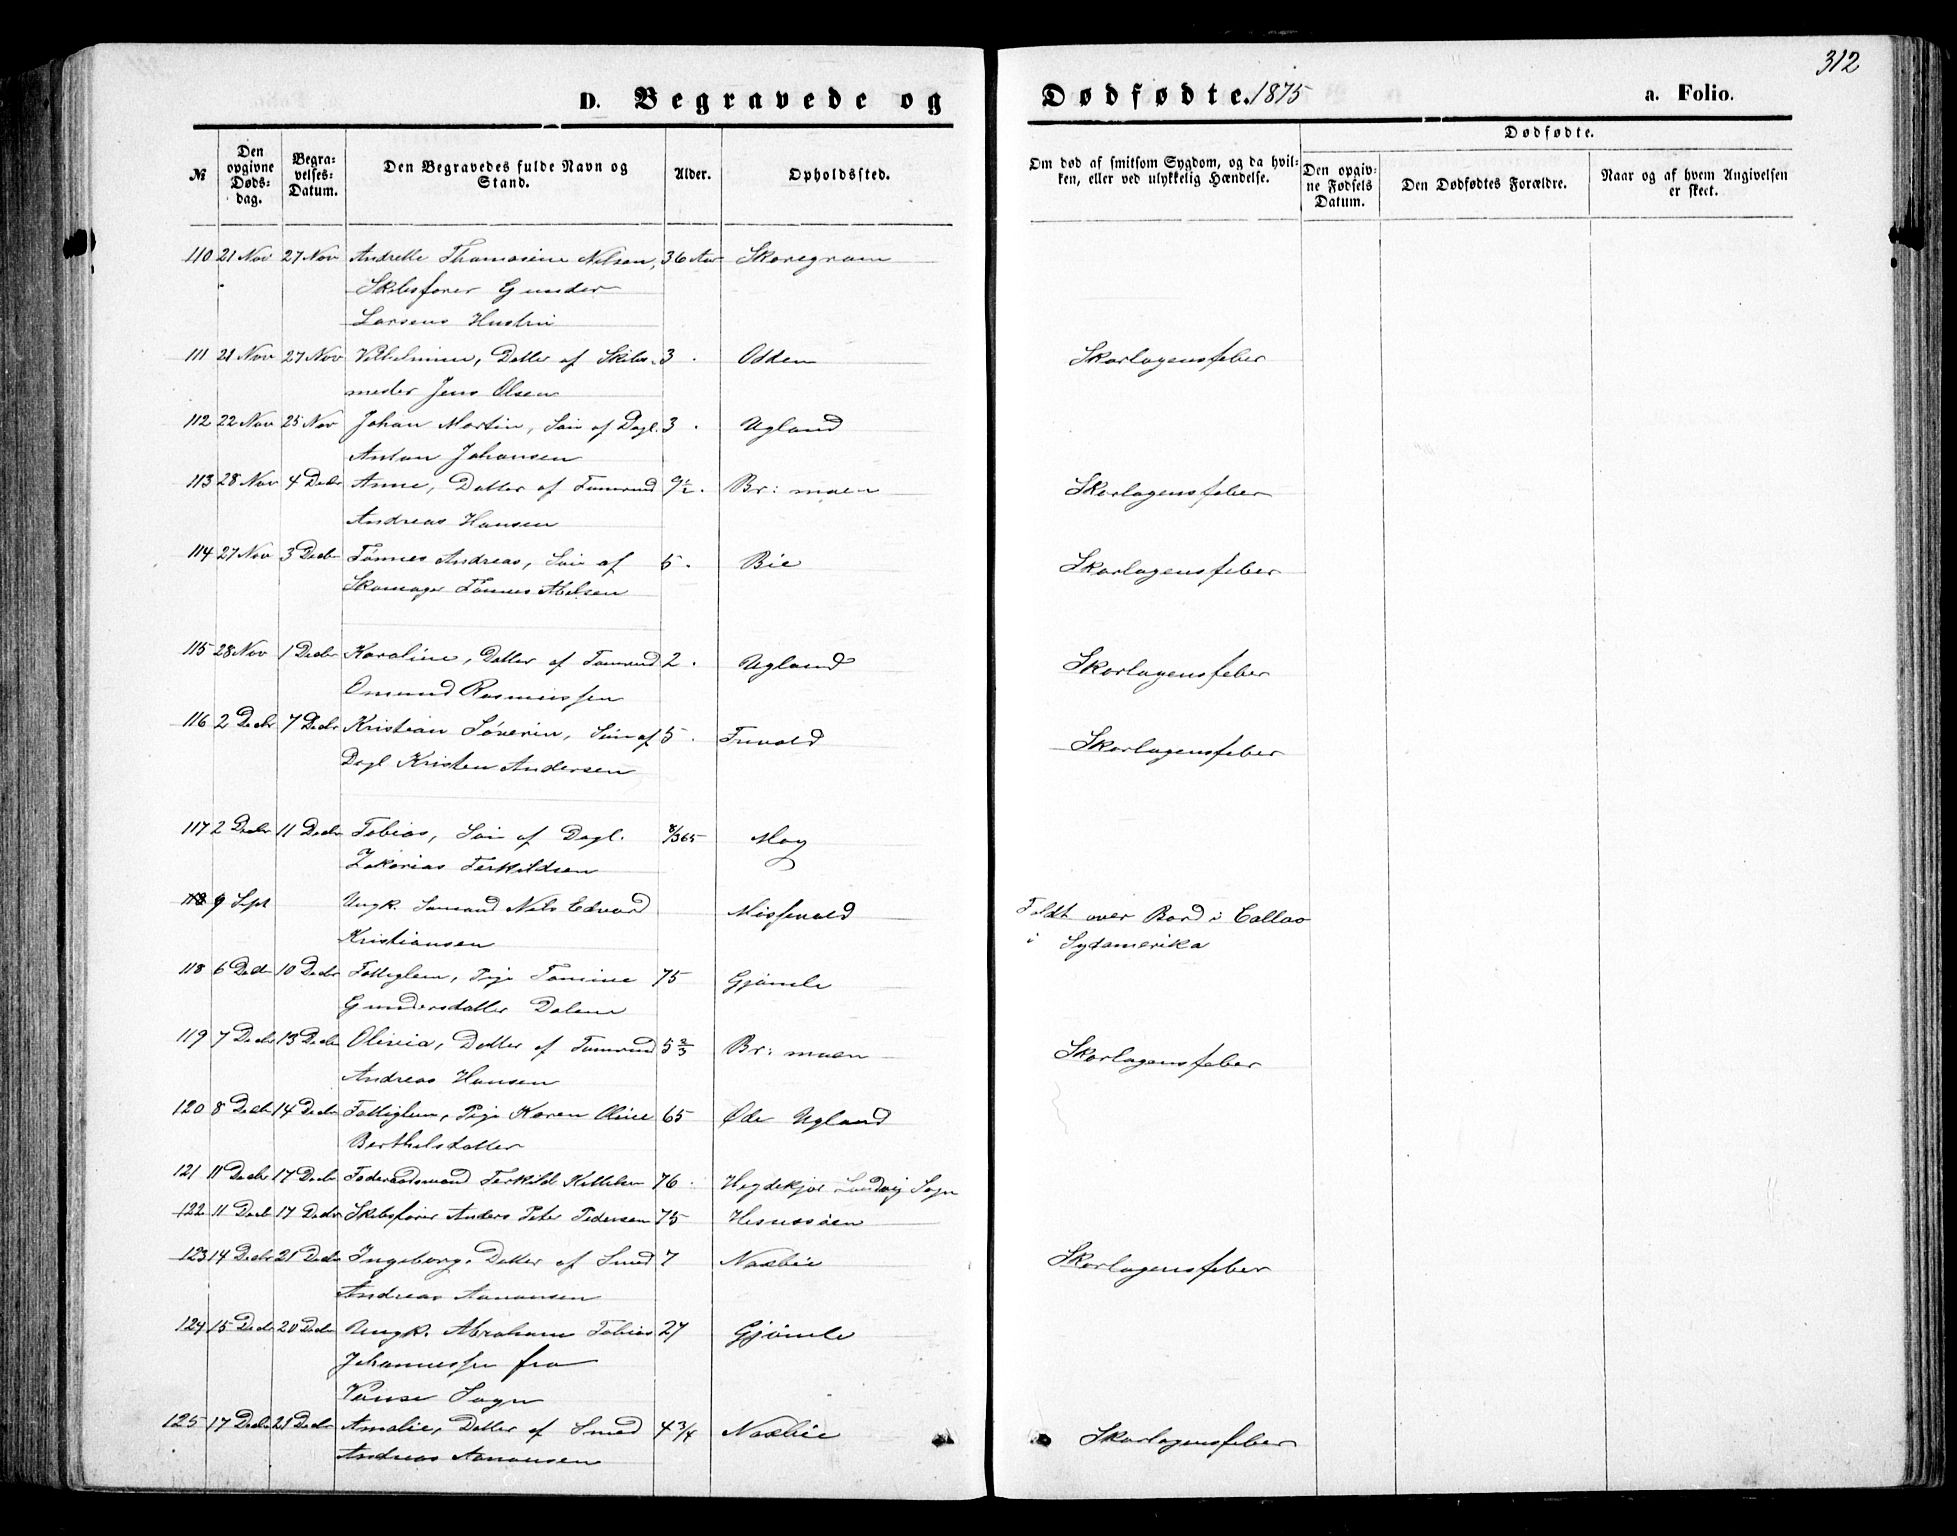 312
D. Begravede og Dødfødte. 1875 a. Folio.
№ Den opgivne Døds-dag. Begra-velses-Datum. Den Begravedes fulde Navn og Stand. Alder. Opholdssted. Om død af smitsom Sygdom, og da hvil-ken, eller ved ulykkelig Hændelse. Dødfødte. Den opgiv-ne Fødsels Datum. Den Dødfødtes Forældre. Naar og af hvem Angivelsen er skeet.
110 21 Nov 27 Nov Andrette Thomasine Nilsen, 36 Aar Skaregrøm
Skibsfører Gunder
Larsens Hustru
111 21 Nov 27 Nov Vilhelmine, Datter af Skibs- 3 Odden Skarlagensfeber
meder Jens Olsen
112 22 Nov 25 Nov Johan Martin, Søn af Dagl. 3 Ugland
Anton Johansen
113 28 Nov 4 Decbr Anne, Datter af Tømmd 9½ Br: moen Skarlagensfeber
Andreas Hansen
114 27 Nov 3 Decbr Tønnes Andreas, Søn af 5 Bie Skarlagensfeber
Skomager Tønnes Abelsen
115 28 Nov 1 Decbr Karoline, Datter af Tømmd 2 Ugland Skarlagensfeber
Omund Rasmussen
116 2 Decbr 7 Decbr Kristian Søverin, Søn af 5 Fuvold Skarlagensfeber
Dagl Kristen Andersen
117 2 Decbr 11 Decbr Tobias, Søn af Dagl. 8/365 Moy
Zakarias Terkildsen
9 Sept Ungk. Sømand Nils Edvard Mossevold Faldt over Bord i Callao
Kristiansen i Sydamerika
118 6 Decbr 10 Decbr Fattiglem, Pige Tomine 75 Gjømle
Gundersdatter Dalene
119 7 Decbr 13 Decbr Olivia, Datter af Tømmd 5⅔ Br: moen Skarlagensfeber
Andreas Hansen
120 8 Decbr 14 Decbr Fattiglem, Pige Karen Oline 65 Øde Ugland
Berthelsdatter
121 11 Decbr 17 Decbr Føderaadsmand Terkild Kittelsen 76 Hegdekjær Landvig Sogn
122 11 Decbr 17 Decbr Skibsfører Anders Peter Pedersen 75 Hesnesøen
123 14 Decbr 21 Decbr Ingeborg, Datter af Smed 7 Naxbie Skarlagensfeber
Andreas Aanonsen
124 15 Decbr 20 Decbr Ungk. Abraham Tobias 27 Gjømle
Johannessen fra
Vanse Sogn
125 17 Decbr 21 Decbr Amalie, Datter af Smed 4¾ Naxbie Skarlagensfeber
Andreas Aanonsen